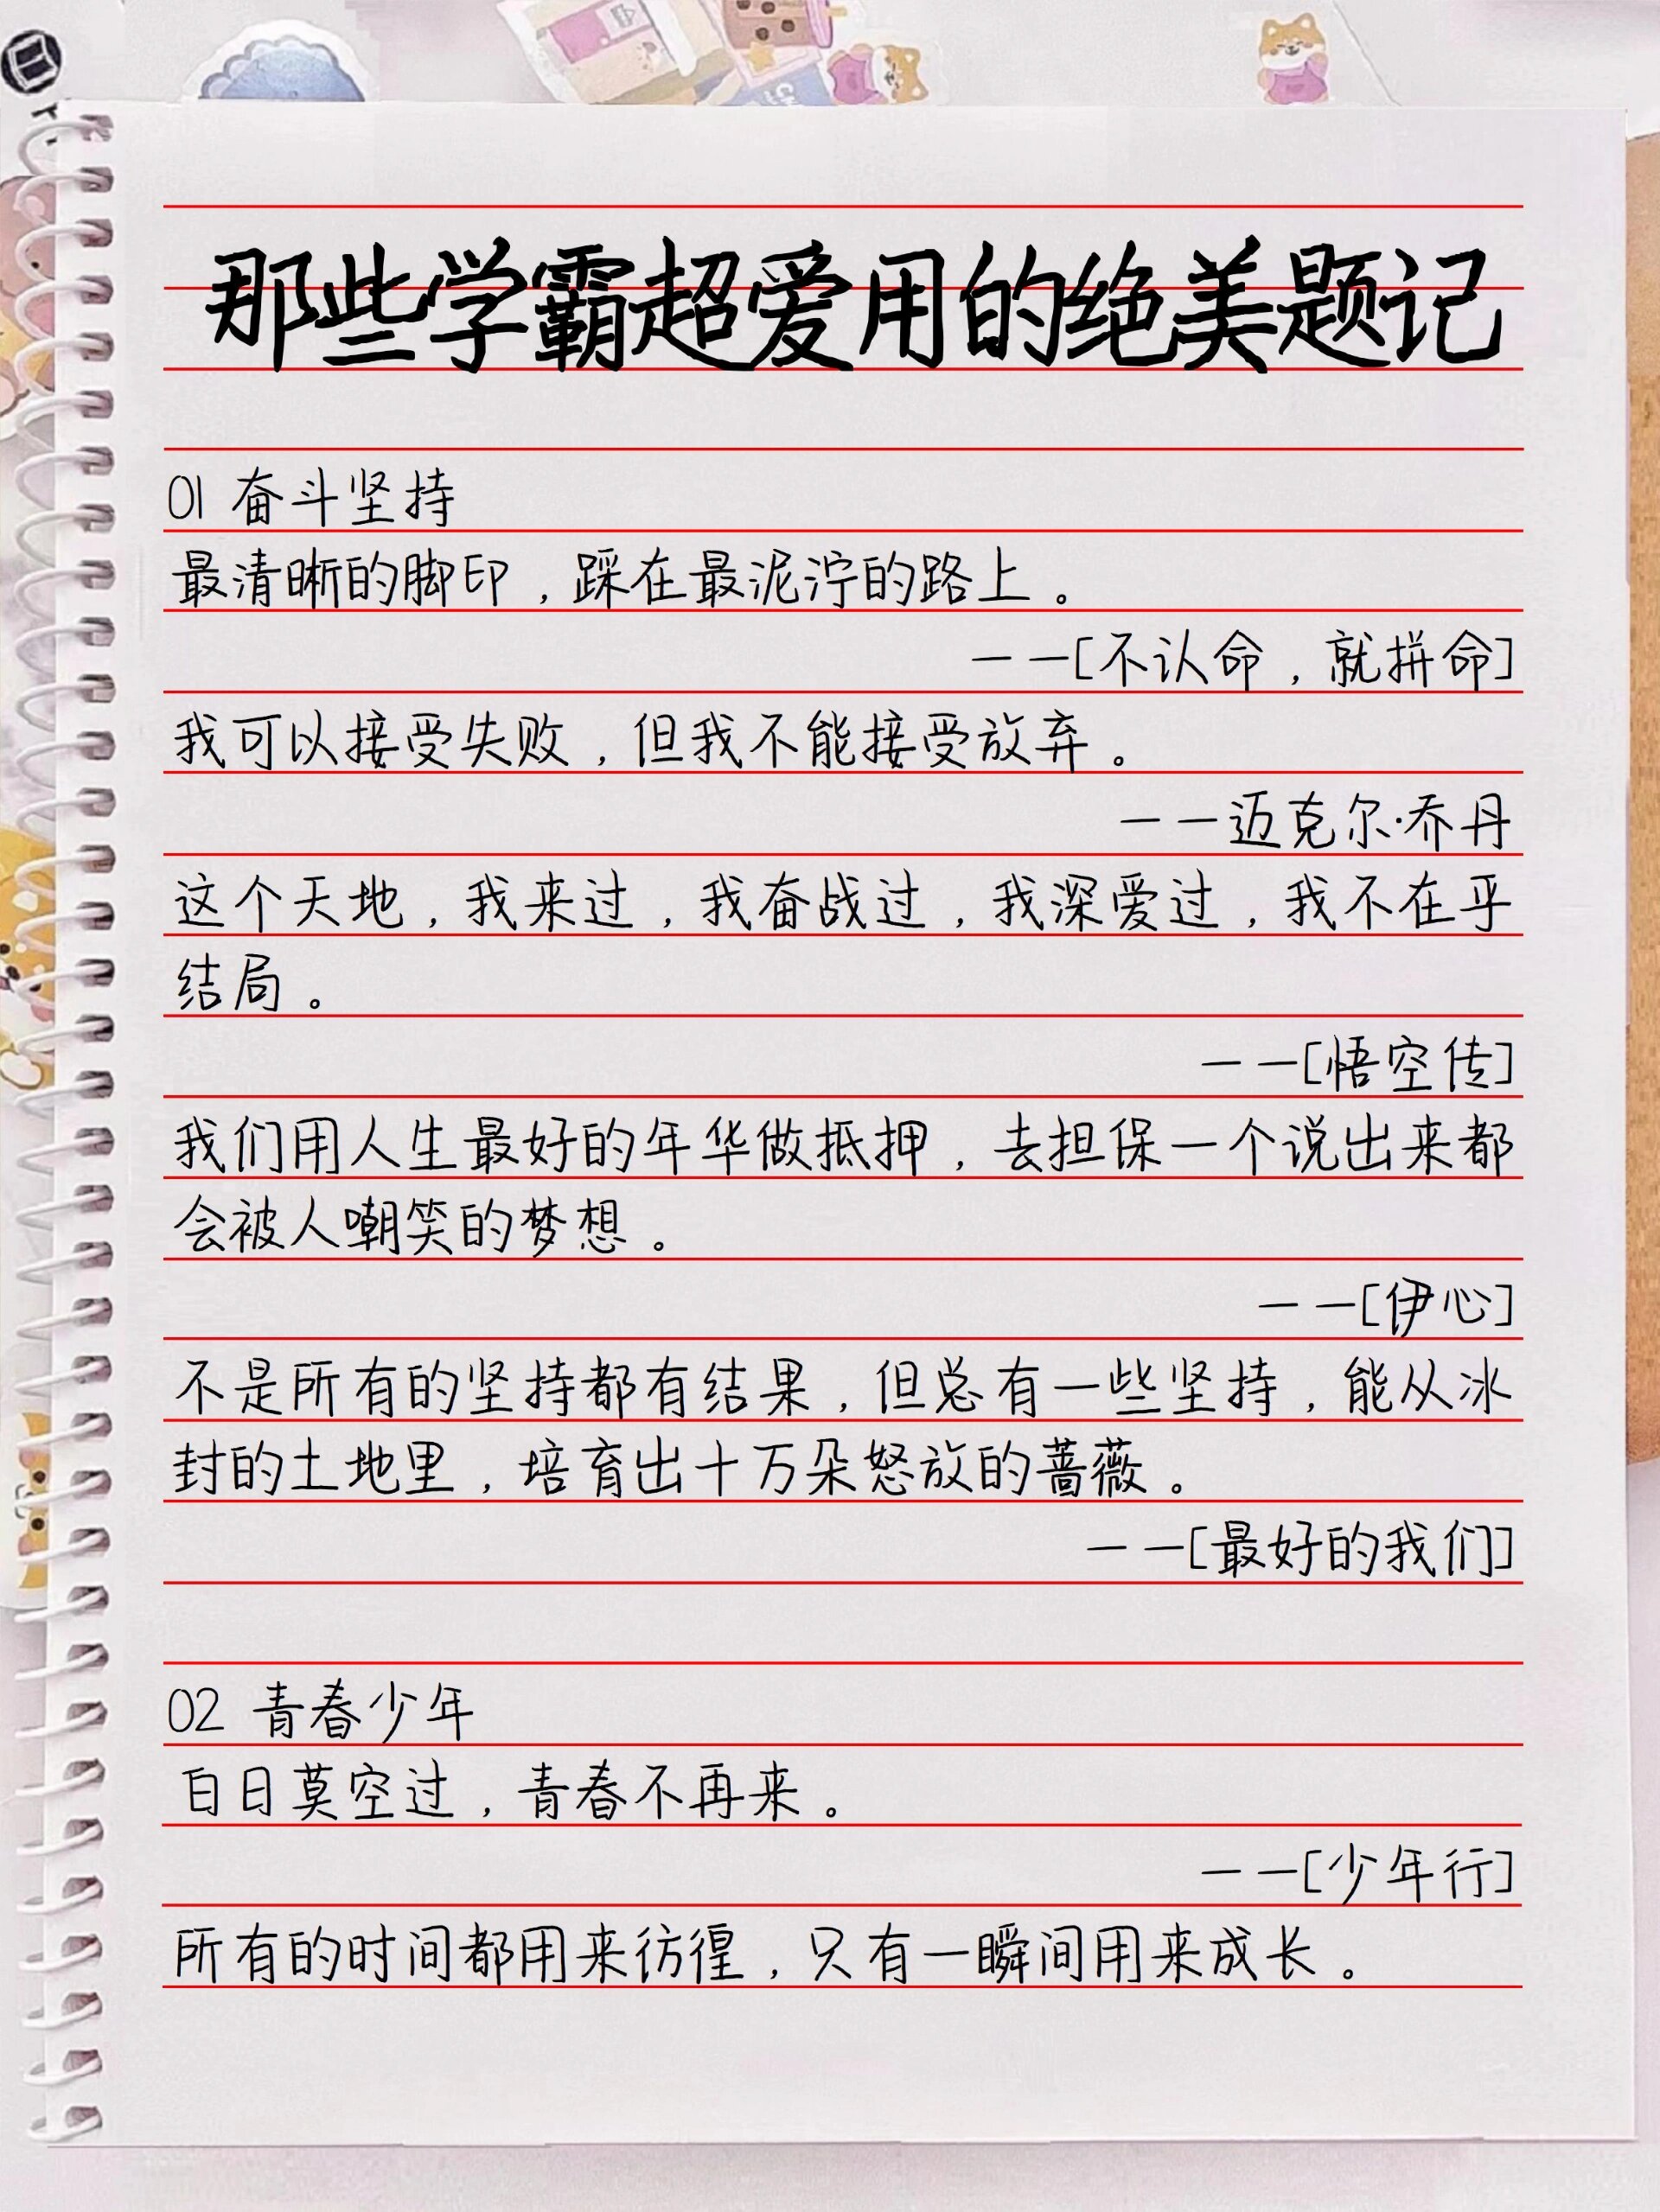 那些学霸超爱用的绝美题记
01 奋斗坚持
最清晰的脚印，踩在最泥泞的路上。
——[不认命，就拼命]
我可以接受失败，但我不能接受放弃。
——迈克尔·乔丹
这个天地，我来过，我奋战过，我深爱过，我不在乎
结局。
——[悟空传]
我们用人生最好的年华做抵押，去担保一个说出来都
会被人嘲笑的梦想。
——[伊心]
不是所有的坚持都有结果，但总有一些坚持，能从冰
封的土地里，培育出十万朵怒放的蔷薇。
——[最好的我们]
02 青春少年
白日莫空过，青春不再来。
——[少年行]
所有的时间都用来彷徨，只有一瞬间用来成长。